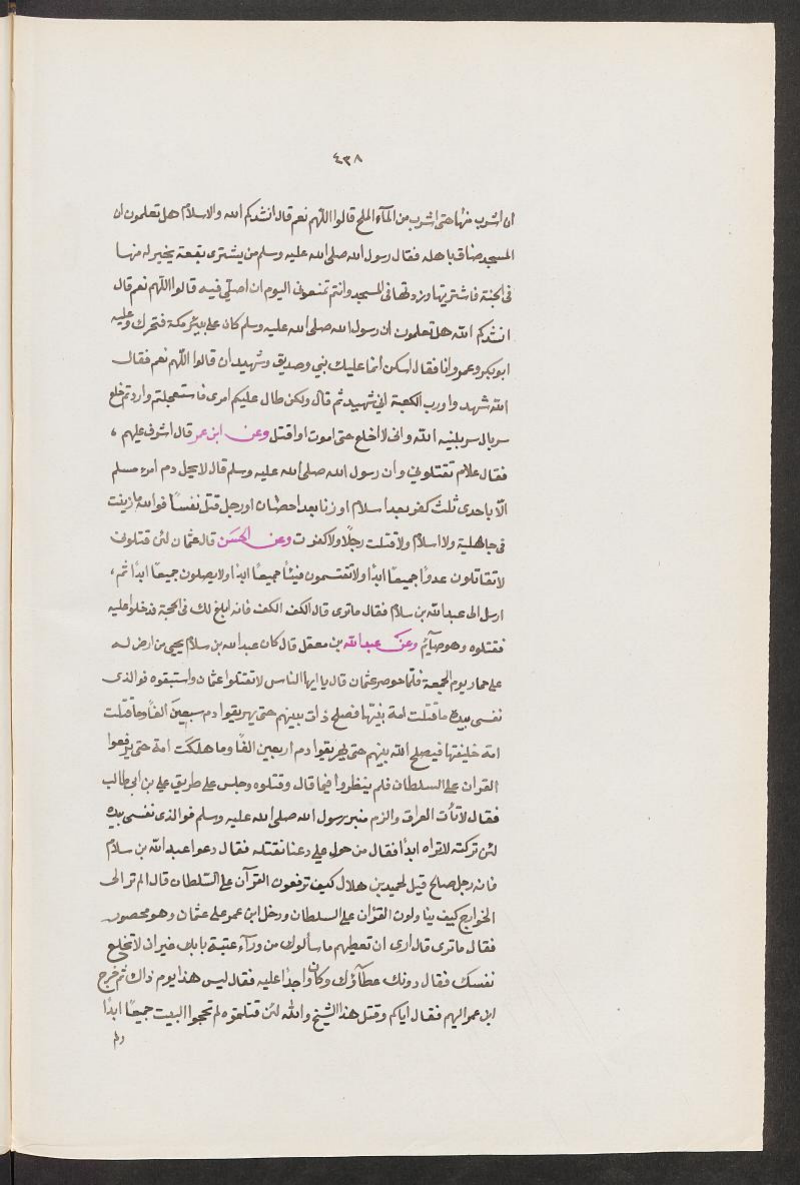 ٤٣٨
ان اشرب منها حتى اشرب من المآء الملح قالوا اللهم نعم قال انشدكم الله والاسلام هل تعلمون ان
المسجد ضاق باهله فقال رسول الله صلى الله عليه وسلم من يشترى بقعة بخير له منها
فى الجنة فاشتريتها وزدتها فى المسجد وانتم تمنعونى اليوم ان اصلّى فيه قالوا اللهم نعم قال
انشدكم الله هل تعلمون ان رسول الله صلى الله عليه وسلم كان على ثبير مكة فتحرك وعليه
ابوبكر وعمر وانا فقال اسكن انما عليك نبي وصديق وشهيدان قالوا اللهم نعم فقال
الله شهدوا ورب الكعبة اني شهيد ثم قال ولكن طال عليكم امرى فاستعجلتم واردتم خلع
سربال سربلنيه الله وانى لا اخلع حتى اموت او اقتل وعن ابن عمر قال اشرف عليهم ،
فقال علام تقتلوني وان رسول الله صلى الله عليه وسلم قال لا يحل دم امرء مسلم
الّا باحدى ثلث كفر بعد اسلام او زنا بعد احصان او رجل قتل نفسًا فوالله ما زينت
فى جاهلية ولا اسلام ولا قتلت رجلًا ولا كفرت وعن الحسَن قال عثمان لئن قتلونى
لا تقاتلون عدوًا جميعًا ابدًا ولا تقتسمون فيئًا جميعًا ابدًا ولا يصلون جميعًا ابدًا ثم ،
ارسل الى عبدالله بن سلام فقال ما ترى قال الكف الكف فانه ابلغ لك فى الحجة فدخلوا عليه
فقتلوه وهو صآيم وعن عبدالله بن معقل قال كان عبدالله بن سلام يجيى من ارض له
على حمار يوم الجمعة فلمّا حوصر عثمان قال يا ايها الناس لا تقتلوا عثمان واستبقوه فوالذى
نفسى بيده ما قتلت امة نبيّها فصلح ذات بينهم حتى يهريقوا دم سبعين الفًا وما قتلت
امة خليفتها فيصلح الله بينهم حتى يهريقوا دم اربعين الفًا وما هلكت امة حتى يرفعوا
القران على السلطان فلم ينظروا فيما قال وقتلوه وجلس على طريق علي بن ابى طالب
فقال لا تأت العراق والزم منبر رسول الله صلى الله عليه وسلم فوالذى نفسى بيده
لئن تركته لا تراه ابدًا فقال من حول علي دعنا نقتله فقال دعوا عبدالله بن سلام
فانه رجل صالح قيل لحميد بن هلال كيف ترفعون القرآن على السّلطان قال الم تر الى
الخوارج كيف يتاولون القرْان على السلطان ودخل ابن عمر على عثمان وهو محصور
فقال ما ترى قال ارى ان تعطيهم ما سألوك من ورآء عتبة بابك غير ان لا تخلع
نفسك فقال دونك عطآؤك وكان واجدًا عليه فقال ليس هذا يوم ذاك ثم خرج
ابن عمر اليهم فقال اياكم وقتل هذا الشيخ والله لئن قتلتموه لم تحجوا البيت جميعًا ابدًا
ولم